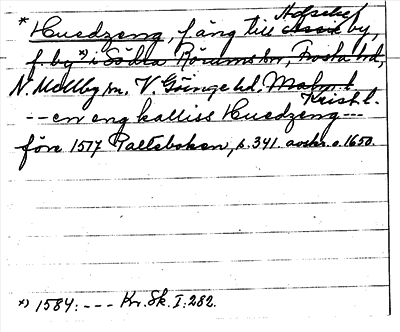 * Huedzeng, f äng till by,
f. by *) i Södra Rörums sn, Frosta hd,
N. Mellby sn, V. Göinge hd, Malm. l.
Krist. l.
-- en eng kalliss Huedzeng ---
före 1517 Palteboken, s. 341. avskr. o. 1650.
*) 1584: --- Kr. Sk. I: 282.